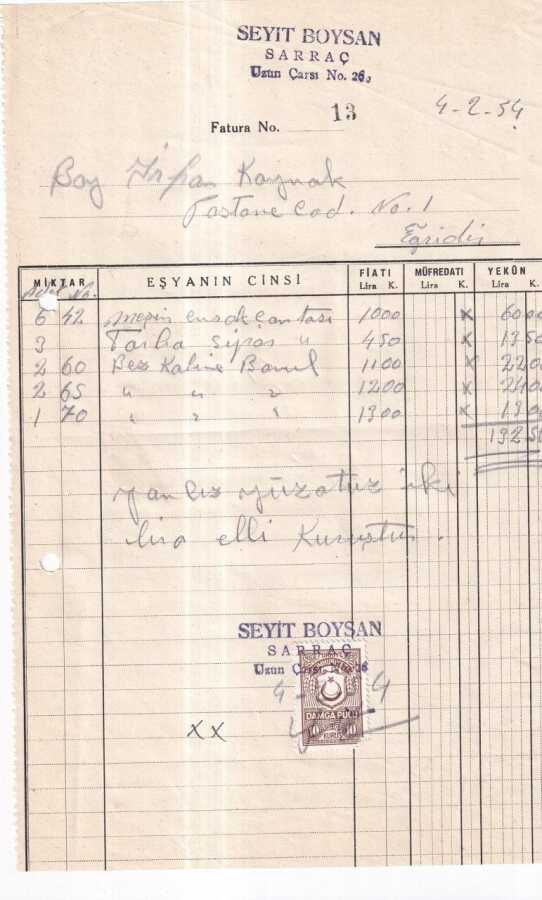 SEYİT BOYSAN
SARRAÇ
Uzun Çarsı No. 26
4-2-54
Fatura No. 13
Bay İrfan Kaynak
Pastane Cad. No. 1
Eğridir
MİKTAR EŞYANIN CİNSİ FİATI MÜFREDATI YEKÛN
Lira K. Lira K. Lira K.
Adet No.
6 42 meşin çantası 1000 x 6000
3 Tarha Sipas " 450 x 1350
2 60 Bez Kaline Bavul 1100 x 2200
2 65 " " " 1200 x 2400
1 70 " " " 1300 x 1300
132 50
yanlız yüzotuz iki
lira elli Kuruştur.
SEYİT BOYSAN
SARRAÇ
Uzun Çarsı No. 26
4
DAMGA PULU
10 KURUŞ 10
x x